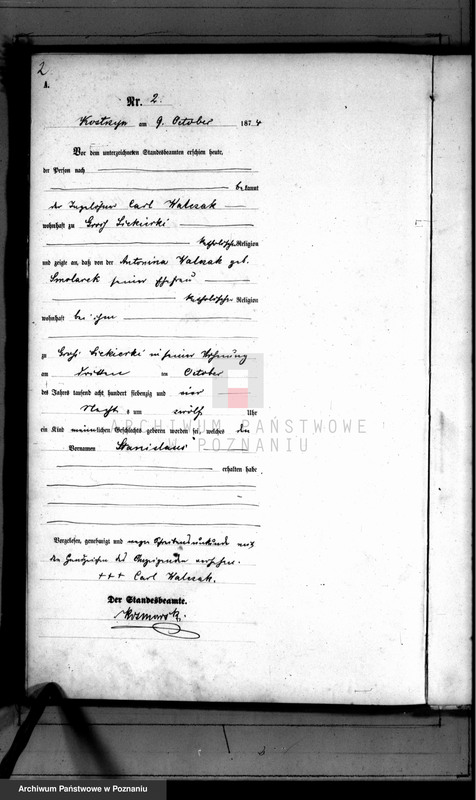 2
A.
Nr. 2.
Kostrzyn am 9. October 1874
Vor dem unterzeichneten Standesbeamten erschien heute,
der Person nach
bekannt
der Carl Walczak
wohnhaft zu Groß Siekierki
katholischer Religion
und zeigte an, daß von der Antonina Walczak geb.
Smolarek seiner Ehefrau
katholischer Religion
wohnhaft bei ihm
zu Groß Siekierki in seiner Wohnung
am dritten ten October
des Jahres tausend acht hundert siebenzig und vier
Nachts um zwölf Uhr
ein Kind männlichen Geschlechts geboren worden sei, welches den
ARCHIWUM PAŃSTWOWE
W POZNANIU
Vornamen Stanislaus
erhalten habe
Vorgelesen, genehmigt und wegen mit
den Handzeichen des Anzeigenden versehen.
+++ Carl Walczak.
Der Standesbeamte.
Archiwum Państwowe w Poznaniu